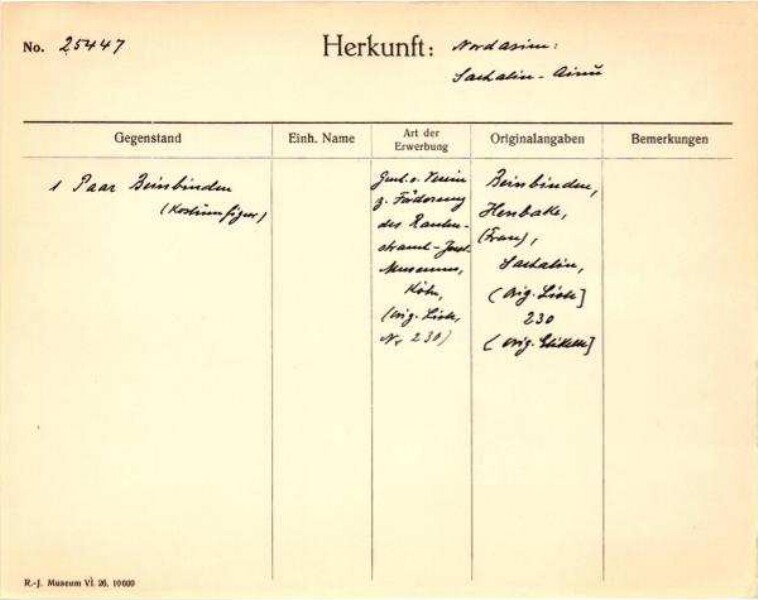 No. 25447
Herkunft: Nordasien:
Sachalin-Ainu
Gegenstand
Einh. Name
Art der
Erwerbung
Originalangaben
Bemerkungen
1 Paar Beinbinden
(Kostümfigur)
v. Verein
z. Förderung
des Rauten-
strauch-Joest
Museums,
Köln,
(orig. Liste,
Nr 230)
Beinbinden,
Henbake,
(Frau),
Sachalin,
(Orig. Liste]
230
(orig. Etikett]
R.-J. Museum VI. 26. 10000